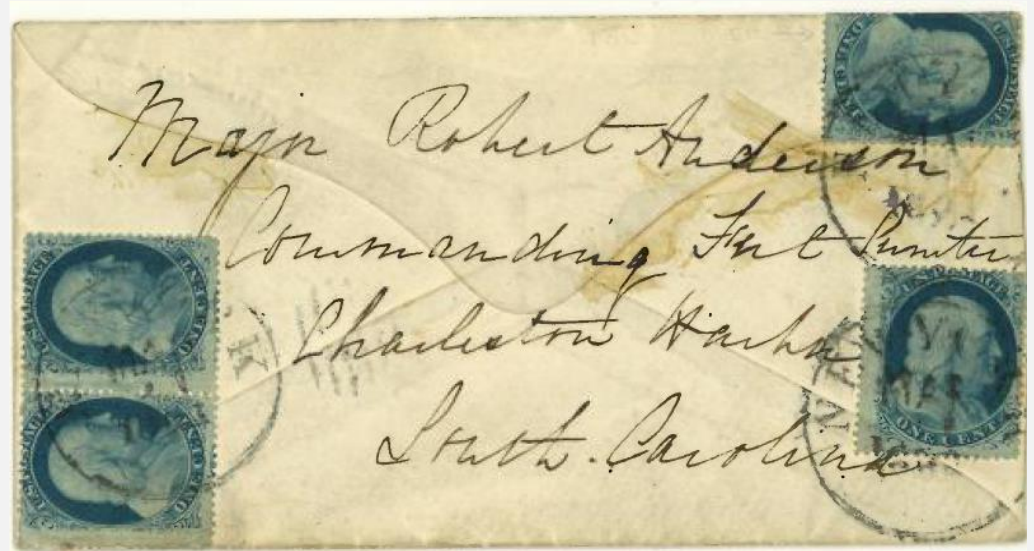 Major Robert Anderson
Commanding Fort Sumter
Charleston Harbor
South. Carolina
U.S. POSTAGE
ONE CENT
MAR